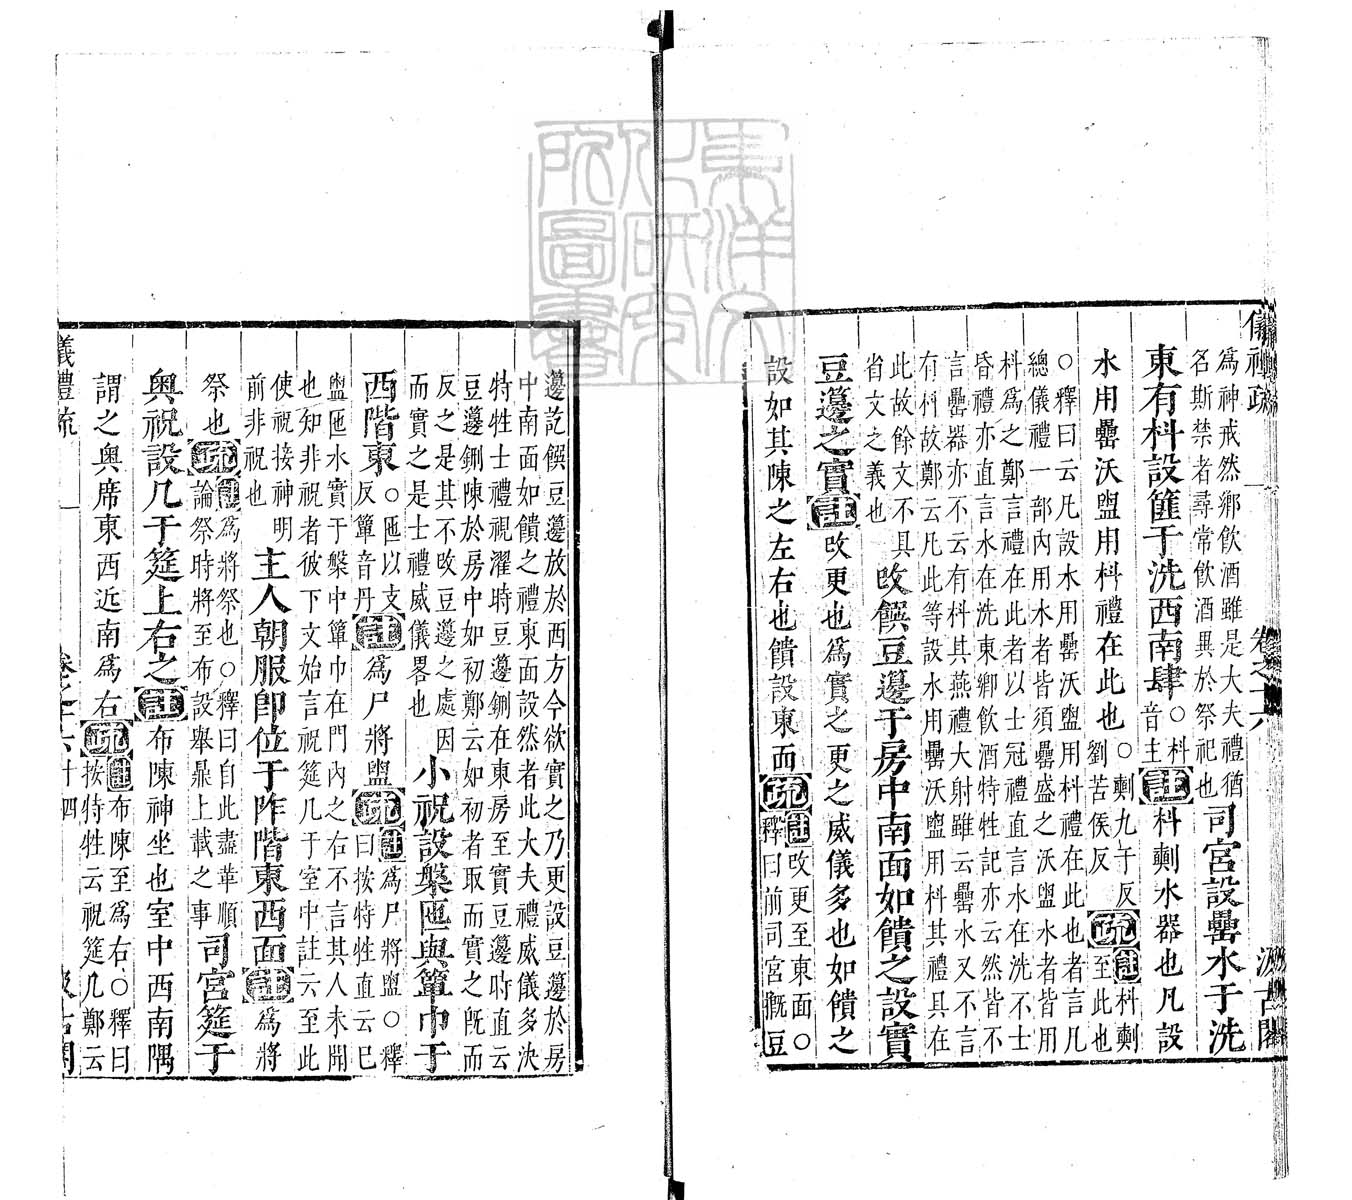 儀禮疏
卷之十六
汲古閣
為神戒然鄉飲酒雖是大夫禮猶
名斯禁者尋常飲酒異於祭祀也
司宮設罍水于洗
東有枓設篚于洗西南肆
○枓
音主
註
枓㪺水器也凡設
水用罍沃盥用枓禮在此也
○㪺九于反
劉苦侯反
疏
註枓㪺
至此也
○釋曰云凡設水用罍沃盥用枓禮在此也者言凡
總儀禮一部內用水者皆須罍盛之沃盥水者皆用
枓為之鄭言禮在此者以士冠禮直言水在洗不士
昏禮亦直言水在洗東鄉飲酒特牲記亦云然皆不
言罍器亦不云有枓其燕禮大射雖云罍水又不言
有枓故鄭云凡此等設水用罍沃盥用枓其禮具在
此故餘文不具
省文之義也
改饌豆籩于房中南面如饋之設實
豆籩之實
註
改更也為實之更之威儀多也如饋之
設如其陳之左右也饋設東面
疏
註改更至東面○
釋曰前司宮概豆
籩訖饌豆籩放於西方今欲實之乃更設豆籩於房
中南面如饋之禮東面設然者此大夫禮威儀多決
特牲士禮視濯時豆籩鉶在東房至實豆籩時直云
豆籩鉶陳於房中如初鄭云如初者取而實之既而
反之是其不改豆籩之處因
而實之是士禮威儀畧也
小祝設槃匜與簞巾于
西階東
○匜以支
反簞音丹
註
為尸將盥
疏
註為尸將盥○釋
曰按特牲直云已
盥匜水實于槃中簞巾在門內之右不言其人未聞
也知非祝者彼下文始言祝筵几于室中註云至此
使祝接神明
前非祝也
主人朝服卽位于阼階東西面
註
為將
祭也
疏
註為將祭也○釋曰自此盡革順
論祭時將至布設舉鼎上載之事
司宮筵于
奧祝設几于筵上右之
註
布陳神坐也室中西南隅
謂之奧席東西近南為右
疏
註布陳至為右○釋曰
按特牲云祝筵几鄭云
儀禮疏
卷之十六
十四
汲古閣
東洋文
化研究
所圖書